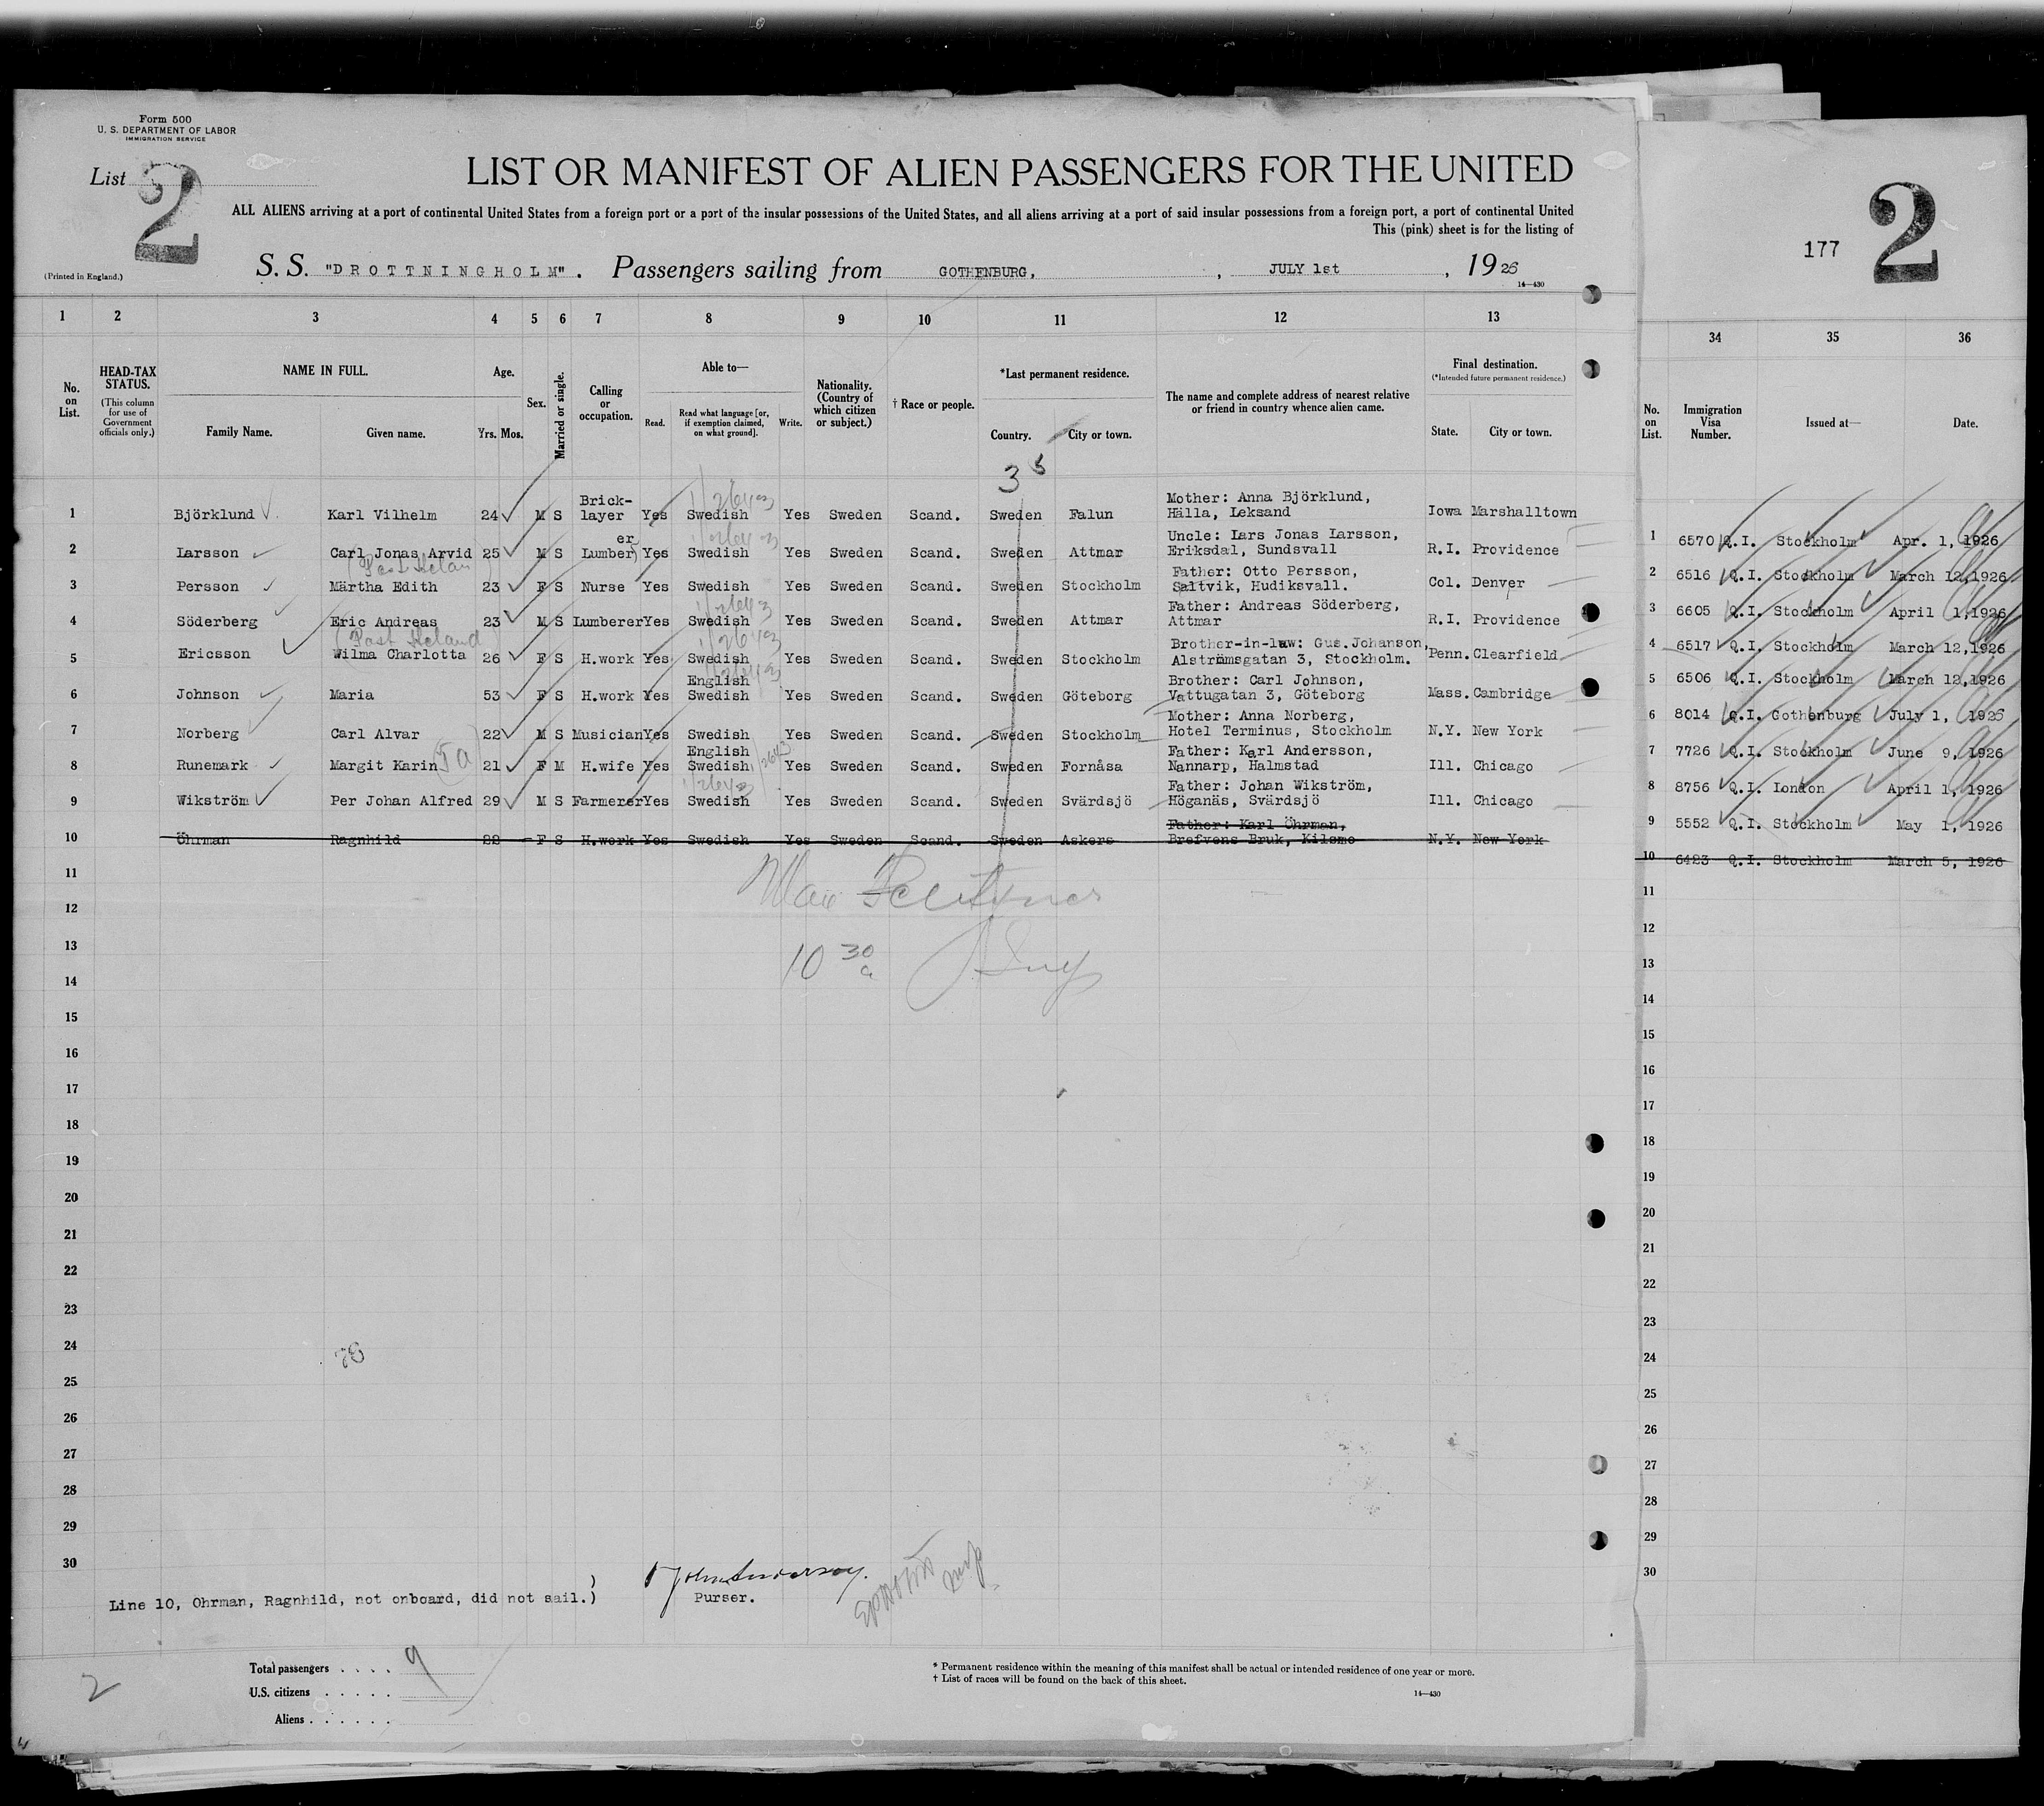 Form 500
U. S. DEPARTMENT OF LABOR
IMMIGRATION SERVICE
List 2
LIST OR MANIFEST OF ALIEN PASSENGERS FOR THE UNITED
ALL ALIENS arriving at a port of continental United States from a foreign port or a port of the insular possessions of the United States, and all aliens arriving at a port of said insular possessions from a foreign port, a port of continental United
This (pink) sheet is for the listing of
(Printed in England.)
S. S. "DROTTNINGHOLM". Passengers sailing from GOTHENBURG, , JULY 1st , 1926
14—430
177 2
1 2 3 4 5 6 7 8 9 10 11 12 13
No. on List.
HEAD-TAX STATUS.
(This column for use of Government officials only.)
NAME IN FULL.
Family Name. Given name.
Age.
Yrs. Mos.
Sex.
Married or single.
Calling or occupation.
Able to—
Read. Read what language [or, if exemption claimed, on what ground]. Write.
Nationality. (Country of which citizen or subject.)
† Race or people.
*Last permanent residence.
Country. City or town.
The name and complete address of nearest relative or friend in country whence alien came.
Final destination.
(*Intended future permanent residence.)
State. City or town.
34 35 36
No. on List.
Immigration Visa Number.
Issued at—
Date.
3 5
1 Björklund Karl Vilhelm 24 M S Brick-layer Yes Swedish Yes Sweden Scand. Sweden Falun Mother: Anna Björklund, Hälla, Leksand Iowa Marshalltown
2 Larsson Carl Jonas Arvid 25 M S Lumberer Yes Swedish Yes Sweden Scand. Sweden Attmar Uncle: Lars Jonas Larsson, Eriksdal, Sundsvall R.I. Providence
3 Persson Märtha Edith 23 F S Nurse Yes Swedish Yes Sweden Scand. Sweden Stockholm Father: Otto Persson, Saltvik, Hudiksvall. Col. Denver
4 Söderberg Eric Andreas 23 M S Lumberer Yes Swedish Yes Sweden Scand. Sweden Attmar Father: Andreas Söderberg, Attmar R.I. Providence
5 Ericsson Wilma Charlotta 26 F S H.work Yes Swedish Yes Sweden Scand. Sweden Stockholm Brother-in-law: Gus.Johanson, Alströmsgatan 3, Stockholm. Penn. Clearfield
6 Johnson Maria 53 F S H.work Yes English Swedish Yes Sweden Scand. Sweden Göteborg Brother: Carl Johnson, Vattugatan 3, Göteborg Mass. Cambridge
7 Norberg Carl Alvar 22 M S Musician Yes Swedish Yes Sweden Scand. Sweden Stockholm Mother: Anna Norberg, Hotel Terminus, Stockholm N.Y. New York
8 Runemark Margit Karin 21 F M H.wife Yes English Swedish Yes Sweden Scand. Sweden Fornåsa Father: Karl Andersson, Nannarp, Halmstad Ill. Chicago
9 Wikström Per Johan Alfred 29 M S Farmerer Yes Swedish Yes Sweden Scand. Sweden Svärdsjö Father: Johan Wikström, Höganäs, Svärdsjö Ill. Chicago
10 Öhrman Ragnhild 22 F S H.work Yes Swedish Yes Sweden Scand. Sweden Askers Father: Karl Öhrman, Brefvens Bruk, Kilsmo N.Y. New York
11
12
13
14
15
16
17
18
19
20
21
22
23
24
25
26
27
28
29
30
10 30 a
1 6570 Q.I. Stockholm Apr. 1, 1926
2 6516 Q.I. Stockholm March 12,1926
3 6605 Q.I. Stockholm April 1,1926
4 6517 Q.I. Stockholm March 12,1926
5 6506 Q.I. Stockholm March 12,1926
6 8014 Q.I. Gothenburg July 1, 1926
7 7726 Q.I. Stockholm June 9, 1926
8 8756 Q.I. London April 1, 1926
9 5552 Q.I. Stockholm May 1, 1926
10 6423 Q.I. Stockholm March 5, 1926
11
12
13
14
15
16
17
18
19
20
21
22
23
24
25
26
27
28
29
30
Line 10, Ohrman, Ragnhild, not onboard, did not sail.)
John Anderson.
Purser.
Total passengers . . . . 9
U.S. citizens . . . . .
Aliens . . . . . .
2
* Permanent residence within the meaning of this manifest shall be actual or intended residence of one year or more.
† List of races will be found on the back of this sheet.
14—430